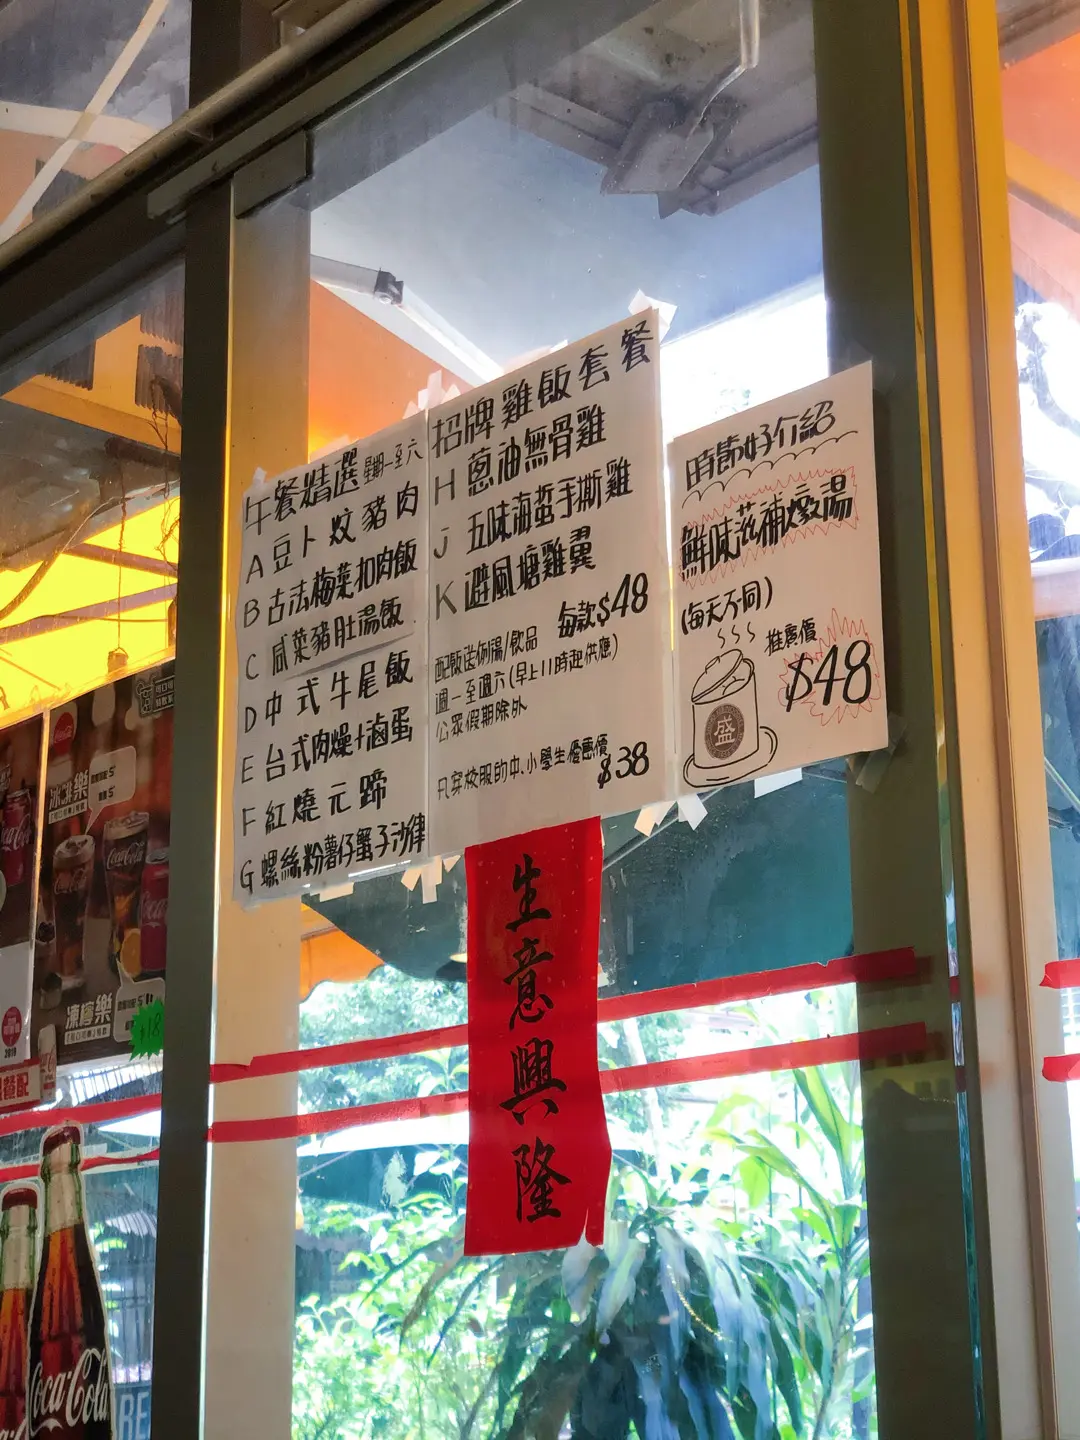 午餐精選 星期一至六
A 豆卜炆豬肉
B 古法梅菜扣肉飯
C 咸菜豬肚湯飯
D 中式牛尾飯
E 台式肉燥+滷蛋
F 紅燒元蹄
G 螺絲粉薯仔蟹子沙律
招牌雞飯套餐
H 蔥油無骨雞
J 五味海蜇手撕雞
K 避風塘雞翼
每款$48
配飯送例湯/飲品
週一至週六(早上11時起供應)
公眾假期除外
凡穿校服的中、小學生優惠價
$38
時節好介紹
鮮味滋補燉湯
(每天不同)
推薦價
$48
盛
生意興隆
冰雪樂
Coca-Cola
凍檸樂
+18
2019
Coca-Cola
BE